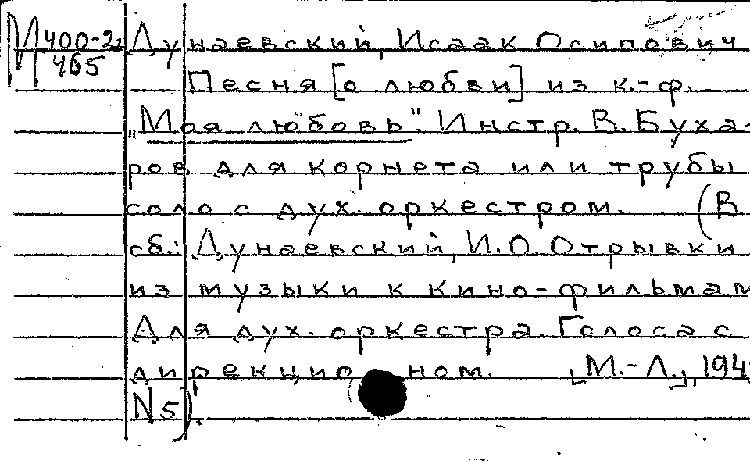 М 400-22 Дунаевский, Исаак Осипович
465 Песня [о любви] из к.-ф.
„Моя любовь". Инстр. В. Буха-
ров для корнета или трубы
соло с дух. оркестром. (В
сб.: Дунаевский, И.О. Отрывки
из музыки к кино-фильмам
Для дух. оркестра. Голоса с
дирекционом. [М.-Л.], 194
N 5)